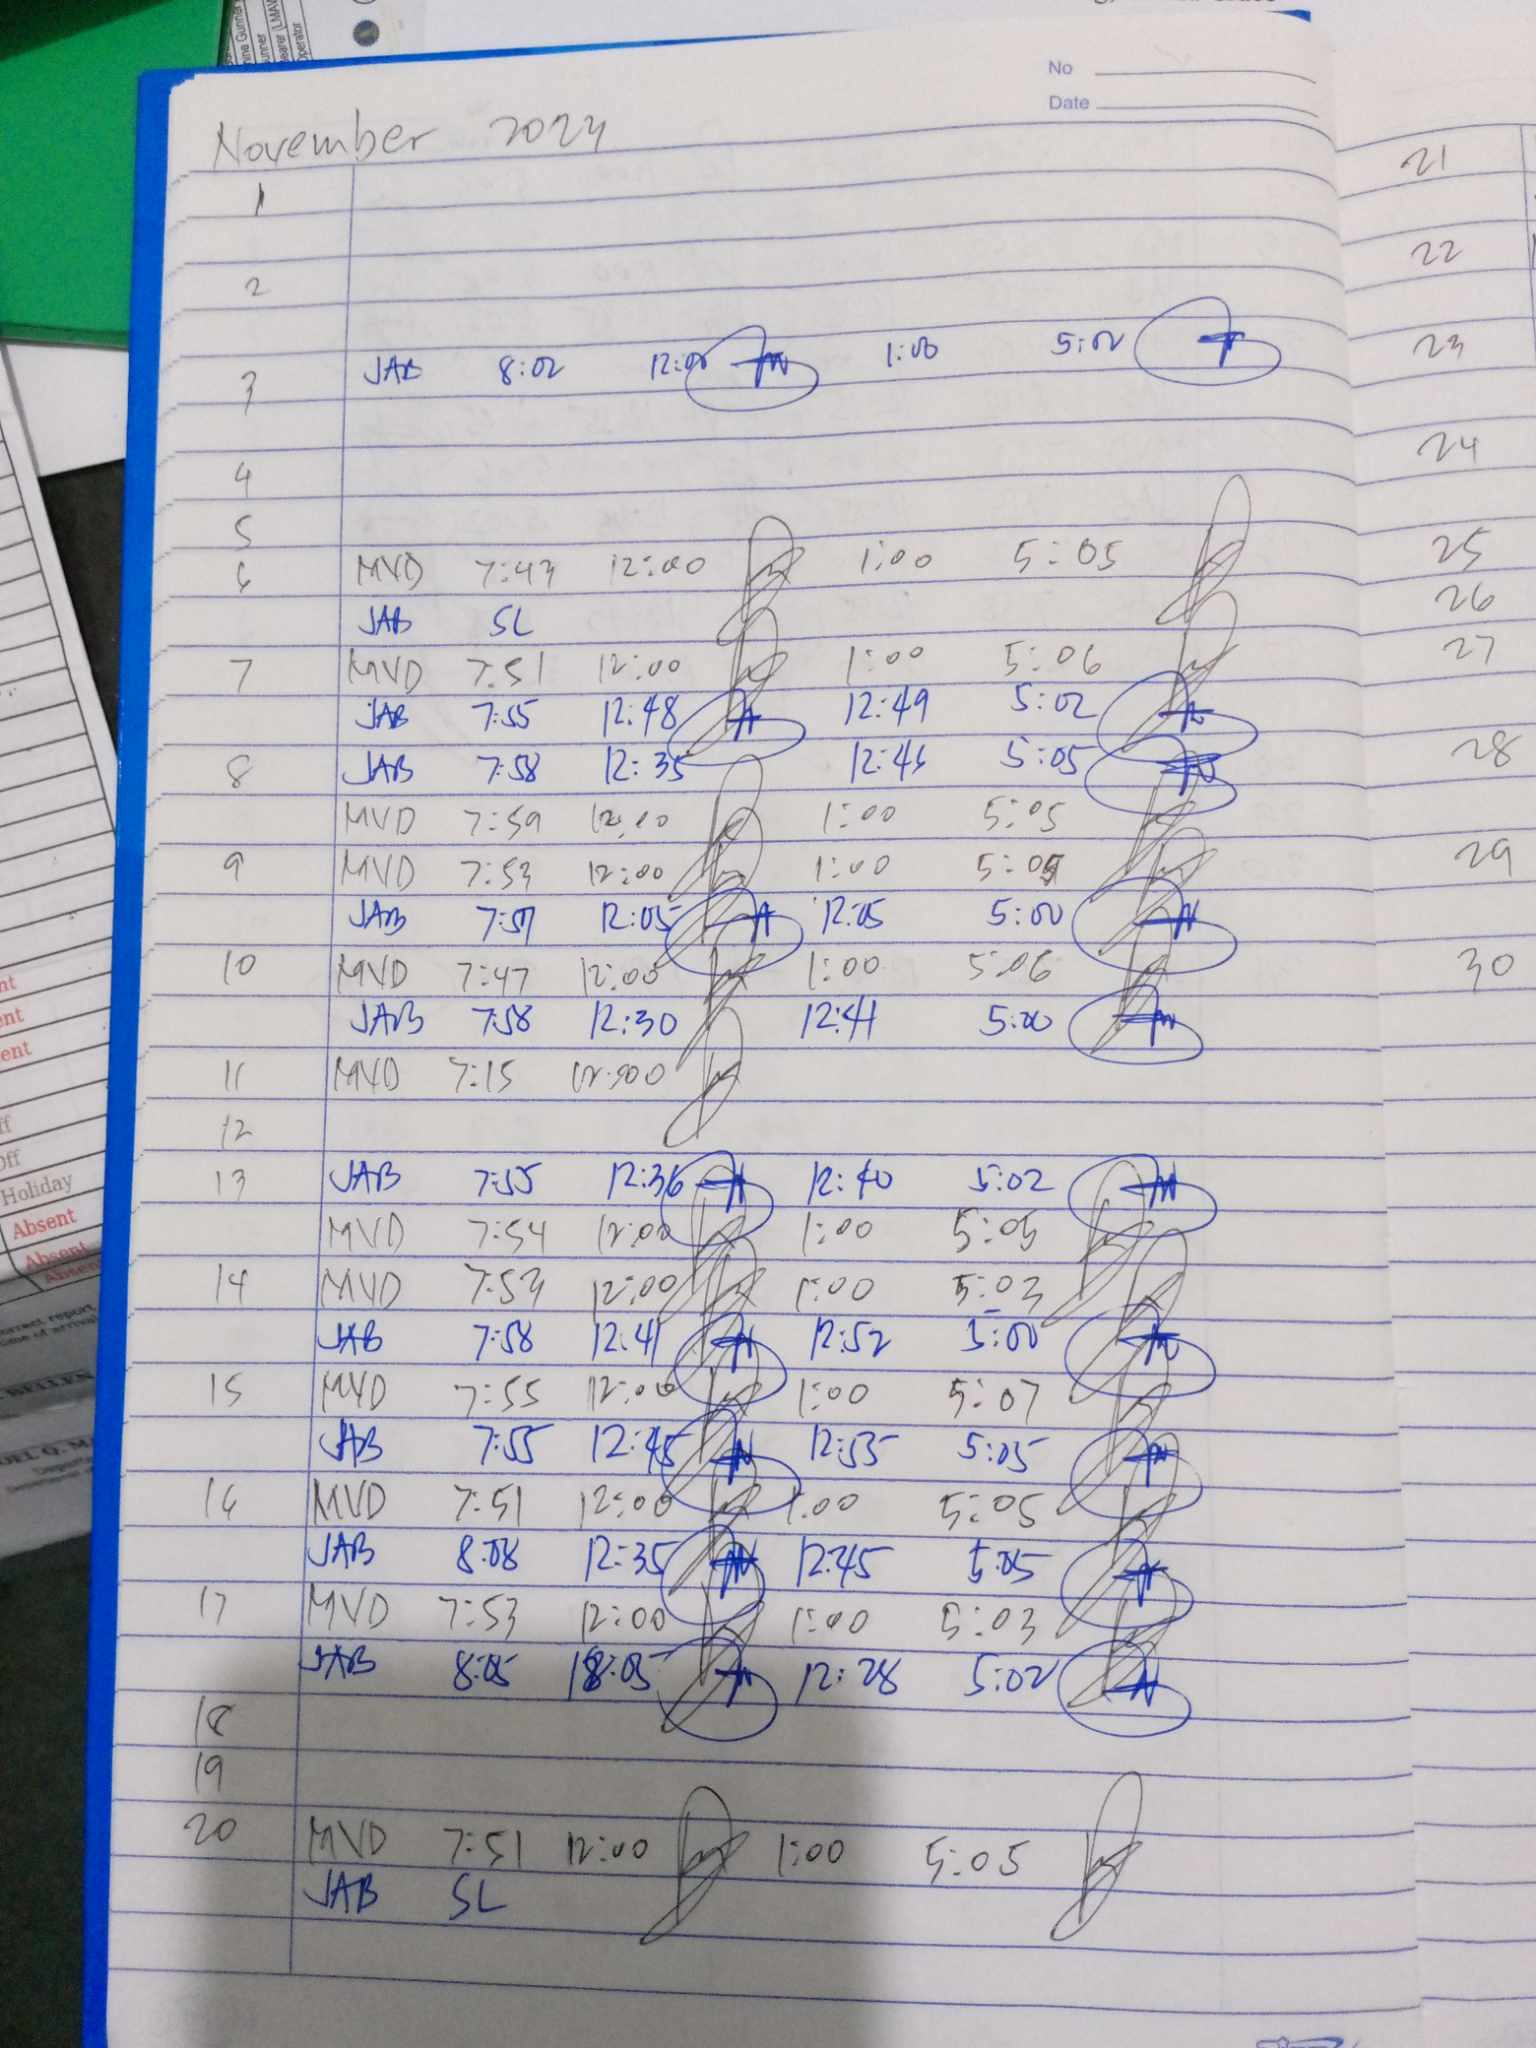 No
Date
November 2023
1
2
3 JAB 8:02 12:00 1:00 5:00
4
5
6 MVD 7:43 12:00 1:00 5:05
JAB SL
7 MVD 7:51 12:00 1:00 5:06
JAB 7:55 12:48 12:49 5:02
8 JAB 7:58 12:35 12:45 5:05
MVD 7:59 12:00 1:00 5:05
9 MVD 7:53 12:00 1:00 5:05
JAB 7:57 12:05 12:05 5:00
10 MVD 7:47 12:00 1:00 5:06
JAB 7:58 12:30 12:41 5:00
11 MVD 7:15 12:00
12
13 JAB 7:55 12:36 12:40 5:02
MVD 7:54 12:00 1:00 5:05
14 MVD 7:53 12:00 1:00 5:03
JAB 7:58 12:41 12:52 5:00
15 MVD 7:55 12:00 1:00 5:07
JAB 7:55 12:45 12:53 5:05
16 MVD 7:51 12:00 1:00 5:05
JAB 8:08 12:35 12:45 5:05
17 MVD 7:53 12:00 1:00 5:03
JAB 8:05 12:28 5:02
18
19
20 MVD 7:51 12:00 1:00 5:05
JAB SL
21
22
23
24
25
26
27
28
29
30
Holiday
Absent
Absent